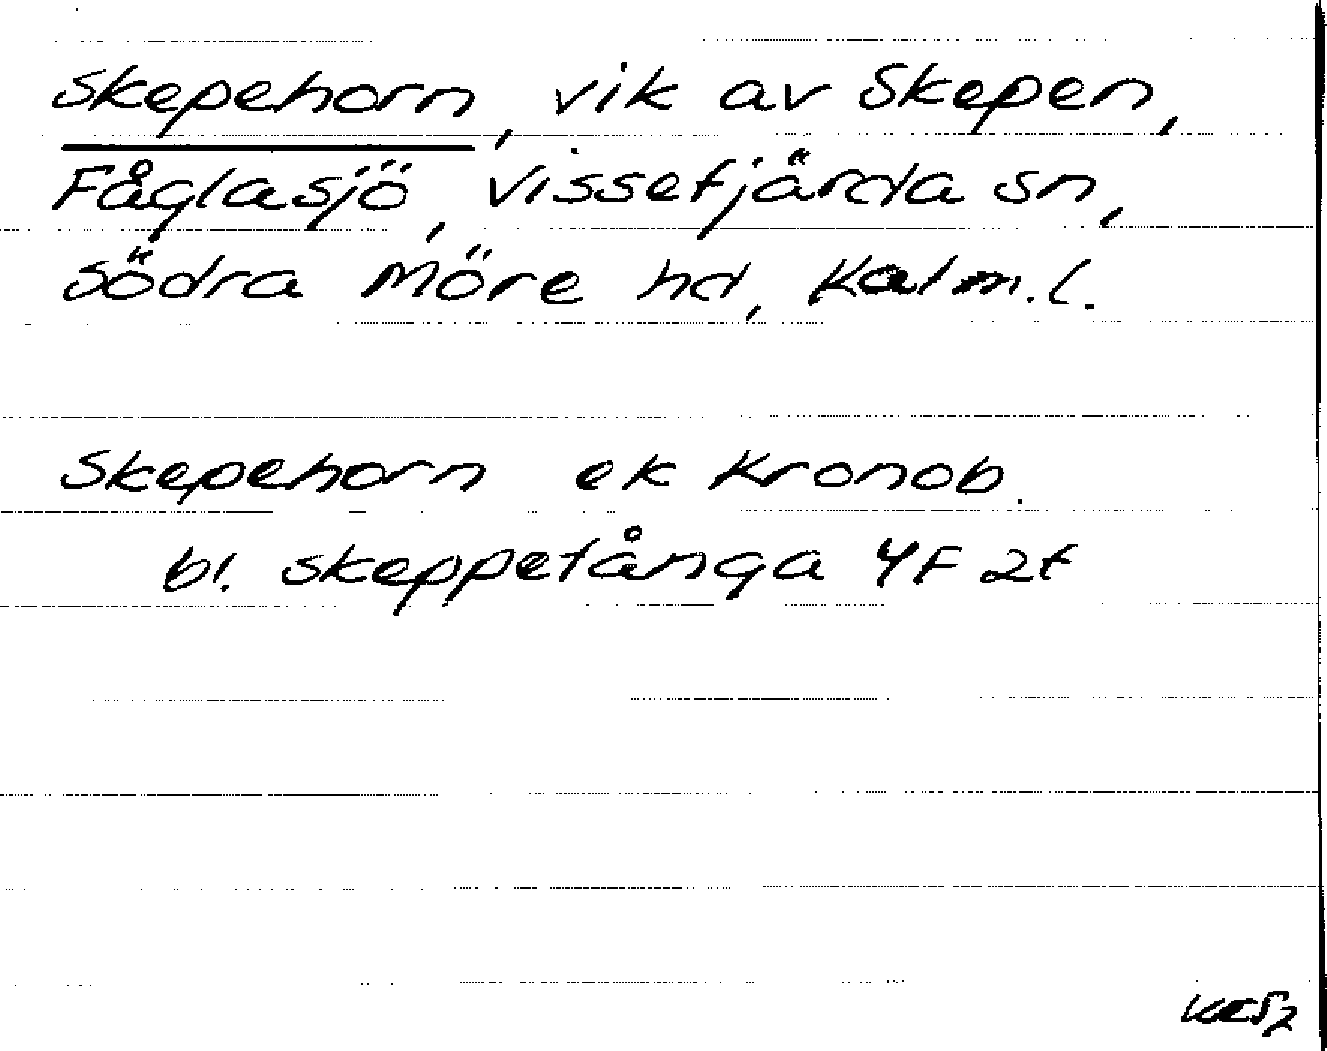 Skepehorn, vik av Skepen,
Fåglasjö, Vissefjärda sn,
Södra Möre hd, Kalm. l.
Skepehorn ek Kronob.
bl. skeppetånga YF 2t